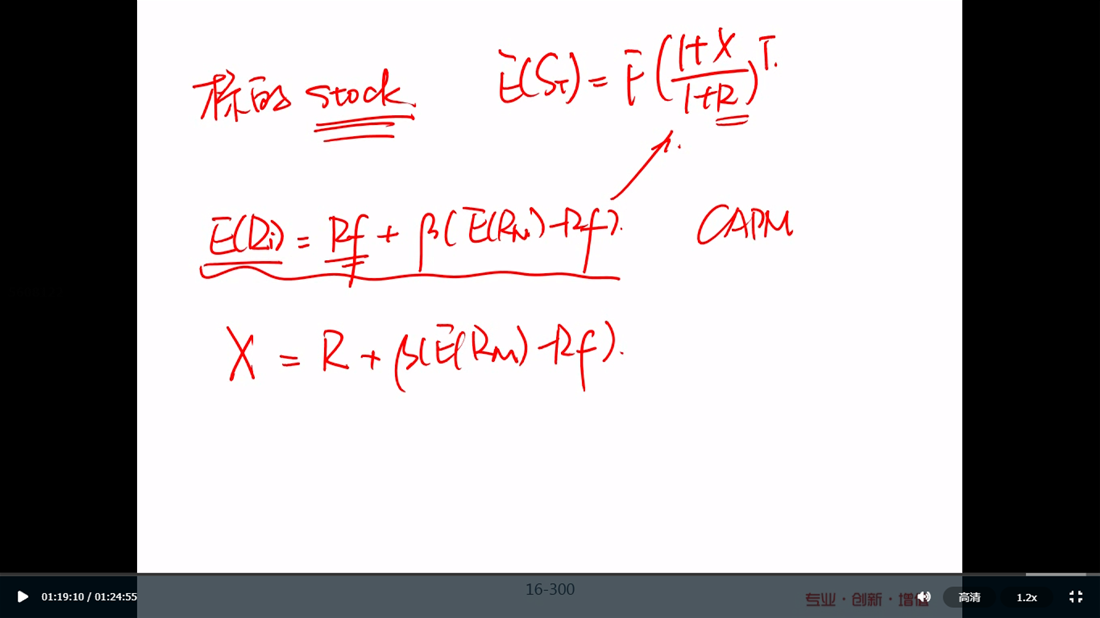 标的 stock E(S_T) = F((1+X)/(1+R))^T.
E(Ri) = Rf + β(E(RM) - Rf). CAPM
X = R + β(E(RM) - Rf).
16-300
专业·创新·增值
01:19:10 / 01:24:55 高清 1.2x